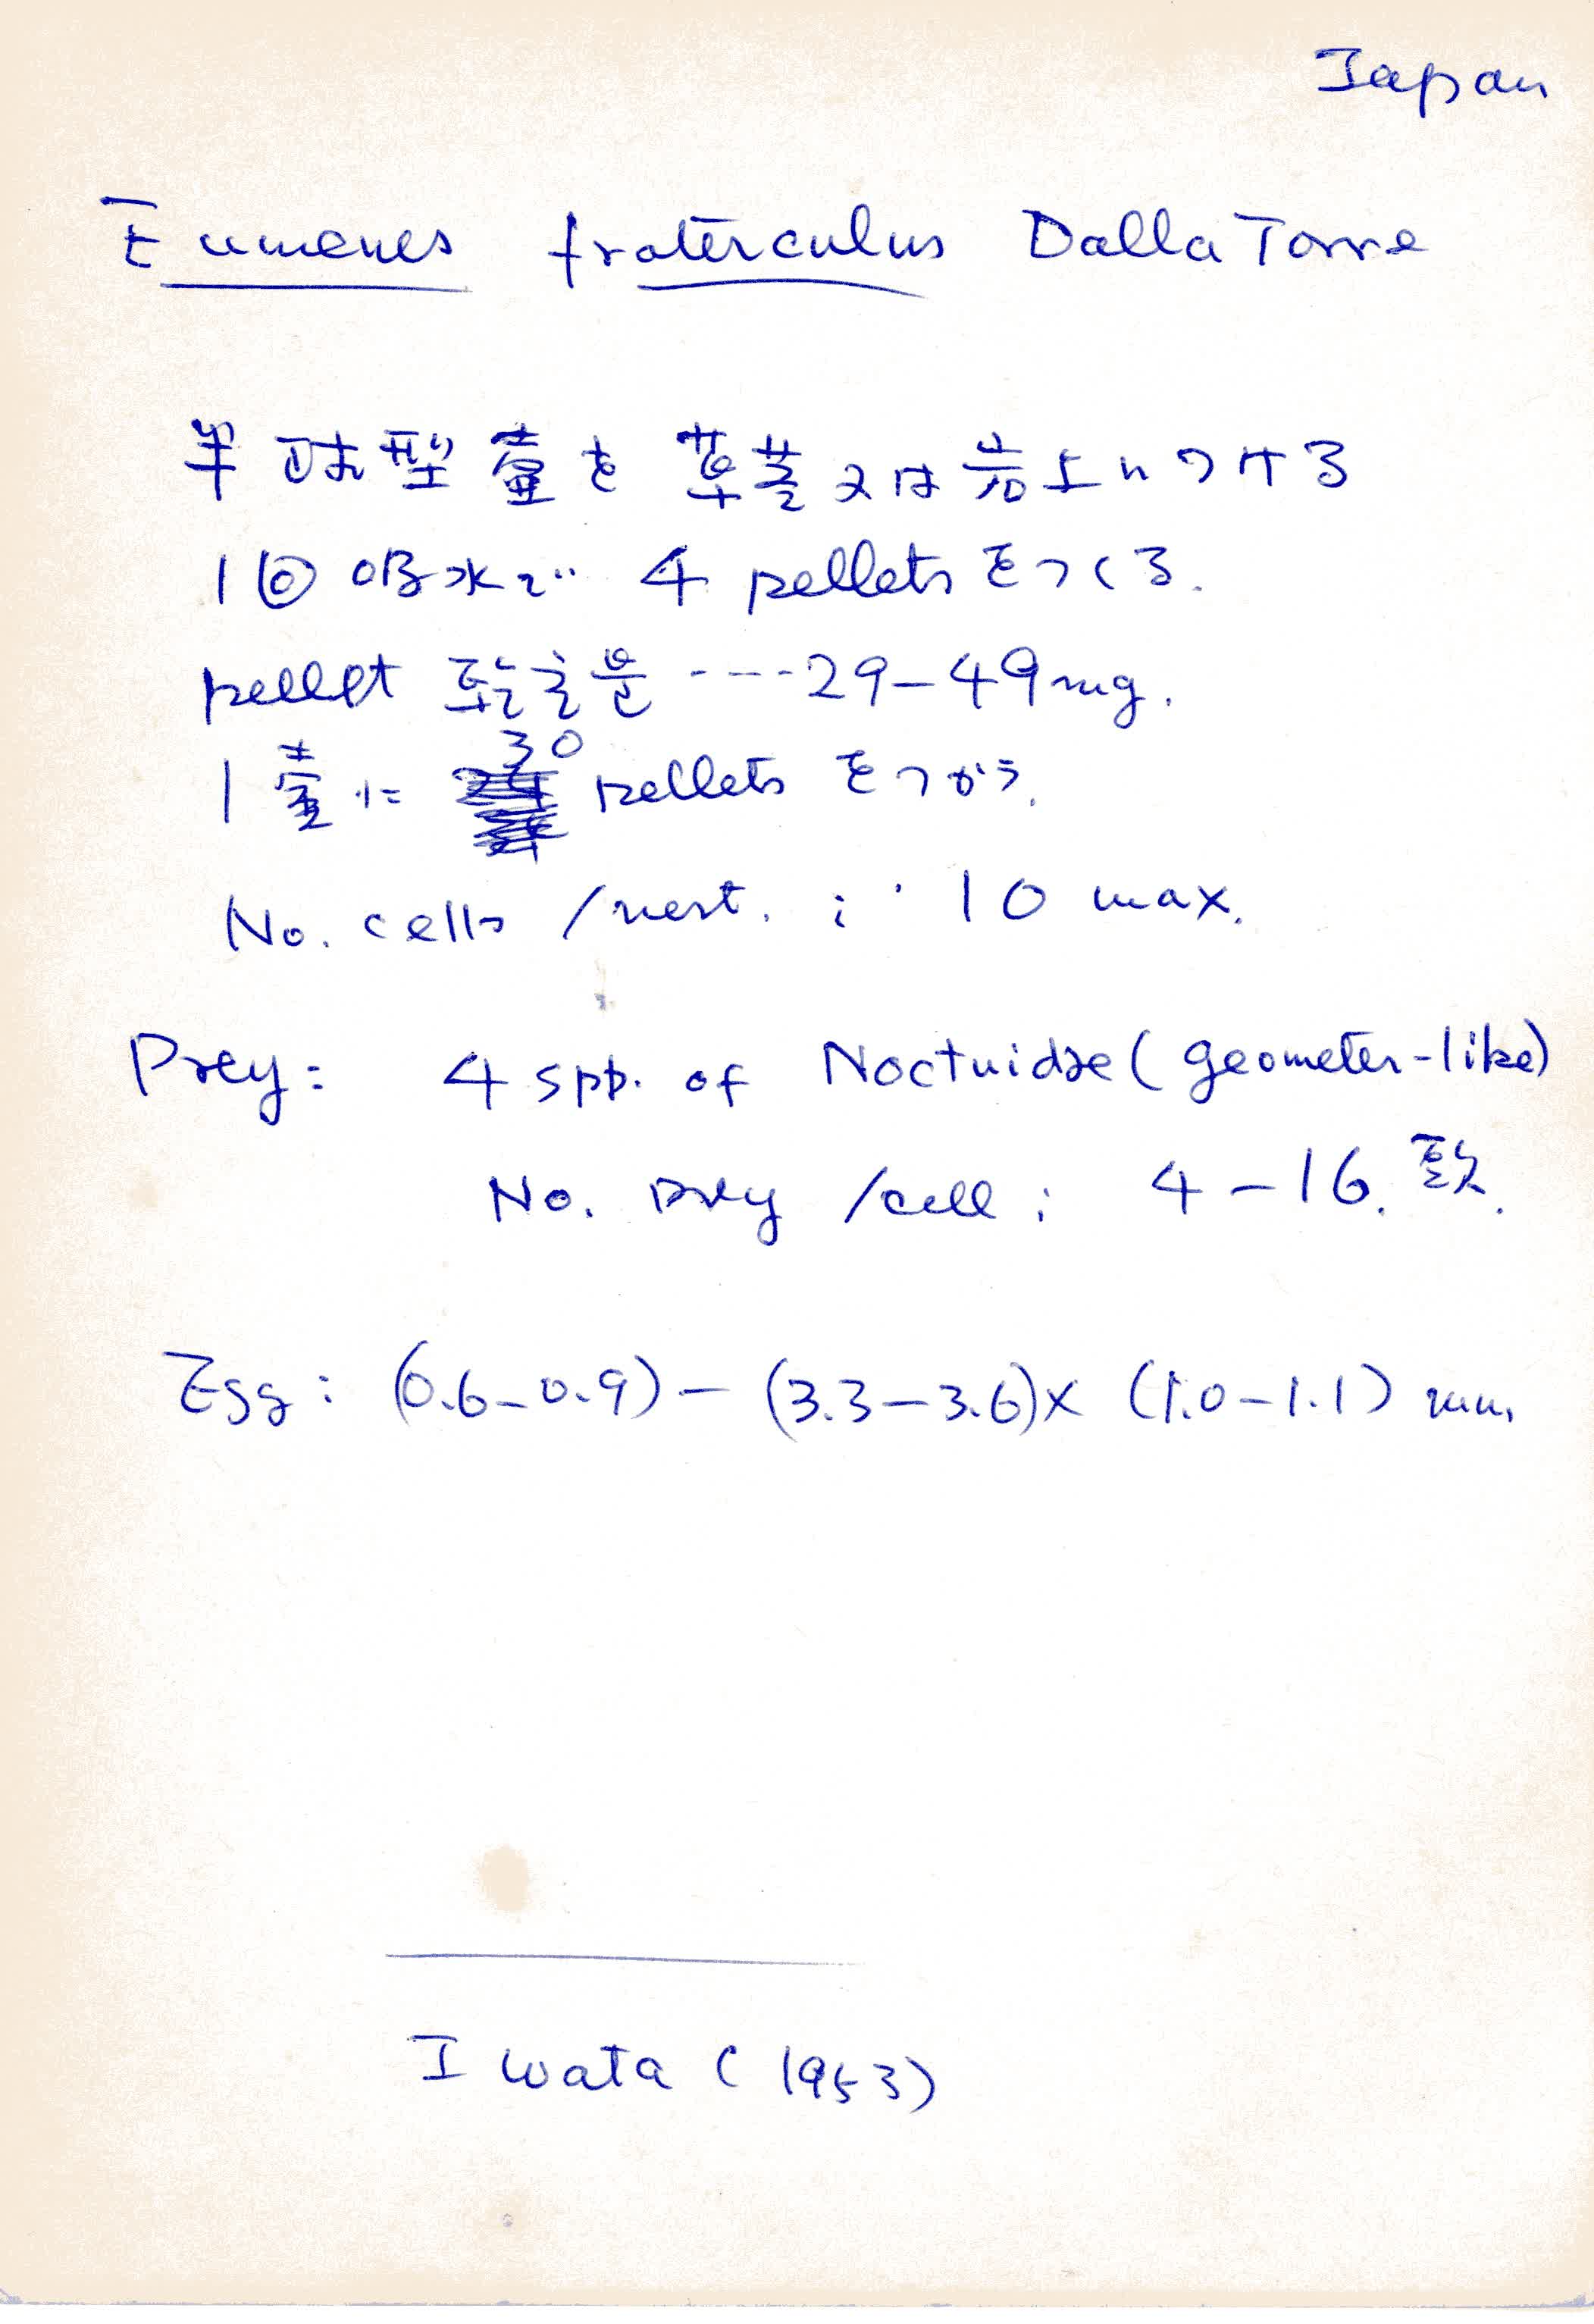 Japan
Eumenes fraterculus Dalla Torre
半球型壷を草茎又は岩上につける
1回吸水で 4 pellets をつくる.
pellet 乾重量 ----29-49mg.
1壷に 30 pellets をつかう.
No. cells /nest. : 10 max.
Prey: 4 spp. of Noctuidae (geometer-like)
No. prey /cell : 4-16. 頭.
Egg : (0.6-0.9)-(3.3-3.6)x (1.0-1.1) mm.
Iwata (1953)